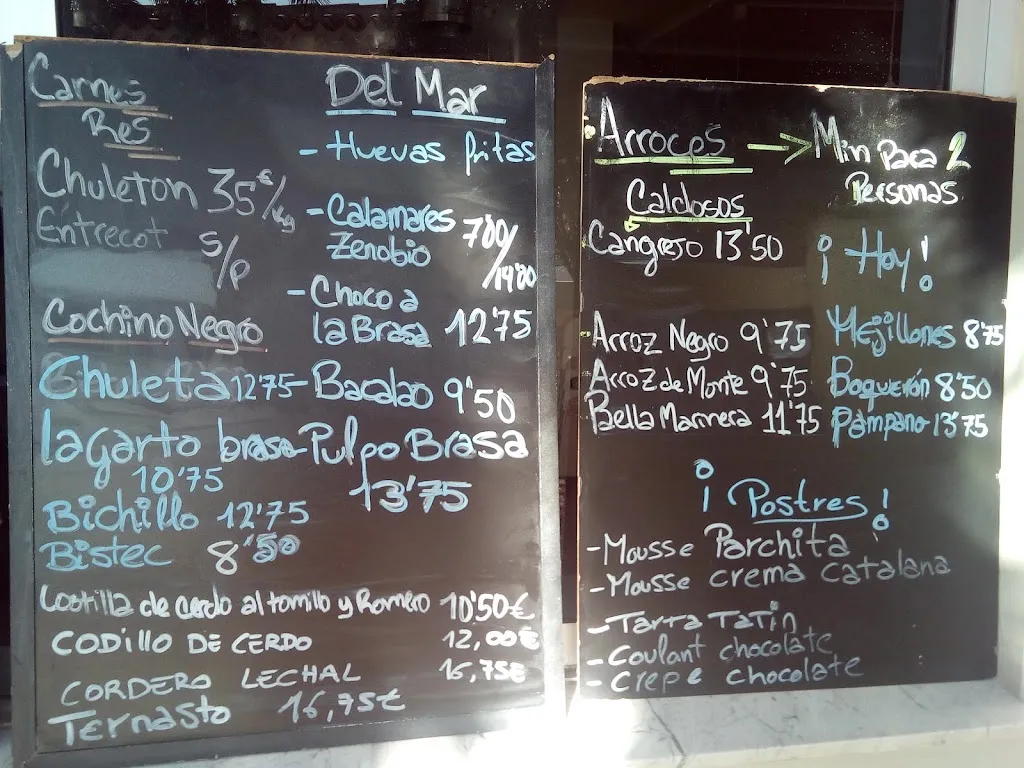 Carnes
Res
Chuleton 35€/Kg
Entrecot S/P
Cochino Negro
Chuleta 12'75
lagarto brasa
10'75
Bichillo 12'75
Bistec 8'50
Costilla de cerdo al tomillo y Romero 10'50€
CODILLO DE CERDO 12,00€
CORDERO LECHAL 16,75€
Ternasto 16,75€
Del Mar
- Huevas fritas
- Calamares 7'00/
Zenobio
- Choco a
la Brasa 12'75
- Bacalao 9'50
- Pulpo Brasa
13'75
Arroces → Min Para 2
Personas
Caldosos
Cangrejo 13'50
Arroz Negro 9'75
Arroz de Monte 9'75
Paella Marinera 11'75
¡Hoy!
Mejillones 8'75
Boquerón 8'50
Pámpano 13'75
¡Postres!
- Mousse Parchita
- Mousse crema catalana
- Tarta Tatin
- Coulant chocolate
- Crepe chocolate